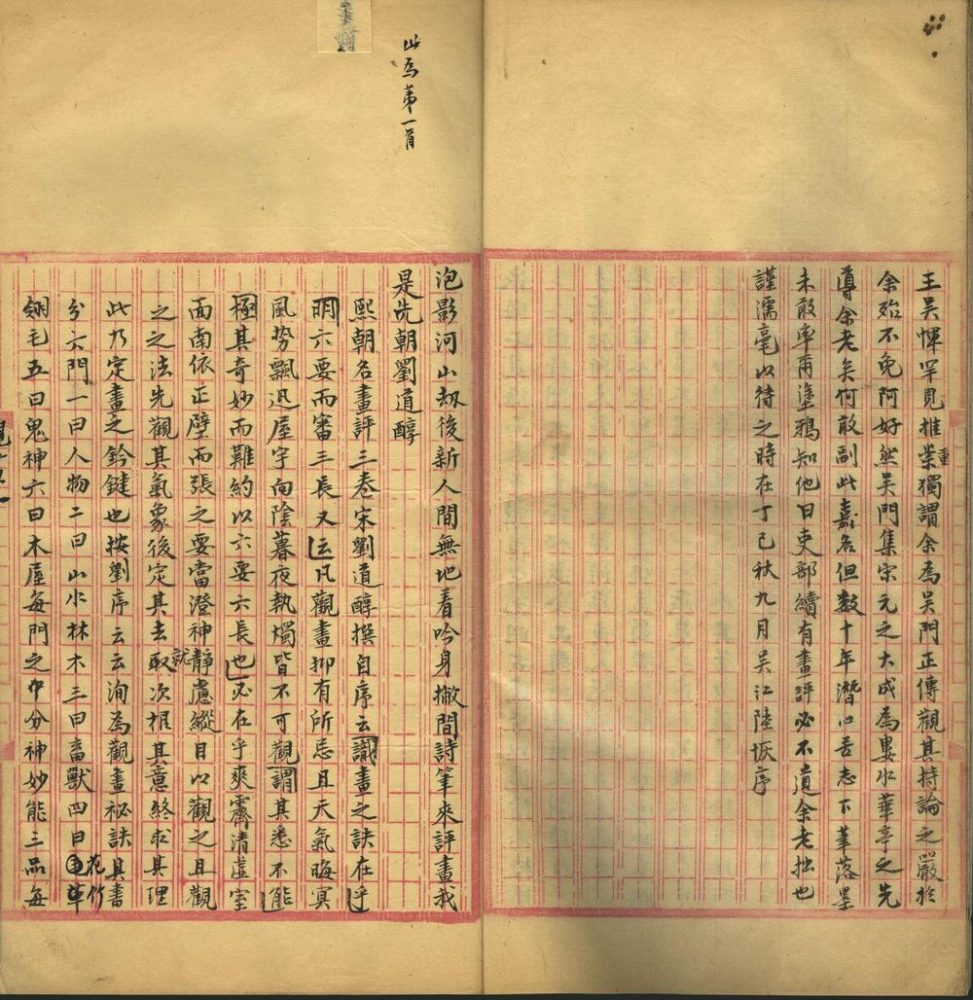 王吳惲罕見推崇獨謂余為吳門正傳觀其持論之嚴於
重
余殆不免阿好然吳門集宋元之大成為婁水華亭之先
導余老矣何敢副此嘉名但數十年潛心苦志下筆落墨
未敢率爾塗鴉知他日吏部續有畫評必不道余老拙也
謹濡毫以待之時在丁巳秋九月吳江陸恢序
此為第一首
泡影河山劫後新人間無地着吟身撇開詩筆來評畫我
是先朝劉道醇
熙朝名畫評三卷宋劉道醇撰自序云識畫之訣在乎
明六要而審三長又云凡觀畫抑有所忌且天氣晦冥
風勢飄迅屋宇向陰暮夜執燭皆不可觀謂其悉不能
極其奇妙而難約以六要六長也必在乎爽霽清虛室
面南依正壁而張之要當澄神靜慮縱目以觀之且觀
就
之之法先觀其氣象後定其去取次根其意終求其理
此乃定畫之鈐鍵也按劉序云云洵為觀畫祕訣其書
分六門一曰人物二曰山水林木三曰畜獸四曰草
花竹
翎毛五曰鬼神六曰木屋每門之中分神妙能三品每